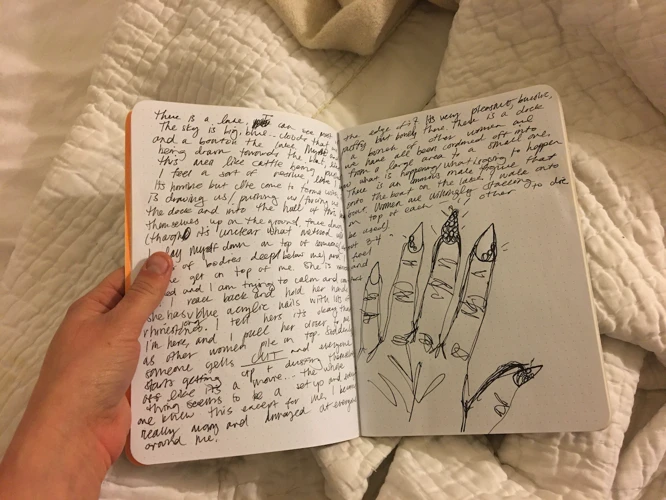 there is a lake. I can see most
The sky is big, blue.. clouds that
and a boat on the lake. Myself and
being drawn towards the boat, like
this area like cattle being
I feel a sort of resolve, like I
its horrible but Ive come to terms with
is drawing us/ pulling us/ forcing us
the dock and into the hull of this
themselves up on the ground,
(though it's unclear what method will
lay myself down on top of
of bodies deep below me) and
get on top of me. She is
and I am trying to calm and
I reach back and hold her hand
she has long blue acrylic nails with lots of
rhinestones. I tell hers its okay that
I'm here, and I pull her closer to me
as other women pile on top. Suddenly
someone yells CUT and everyone
starts getting up + dusting themselves
off like its a movie... the whole
thing seems to be a set up and every
one knew this except for me. I become
really angry and enraged at everyone
around me.
the edge of it? Its very pleasant, bucolic,
puffy but lonely there. There is a dock
a bunch of other women and
we have all been cordoned off into
from a large area to a small one.
what is happening, what is going to happen
There is an ominous male figure that
onto the boat on the lake / walk onto
boat. Women are willingly stacking
on top of each other to die
be used).
3-4
feel
and